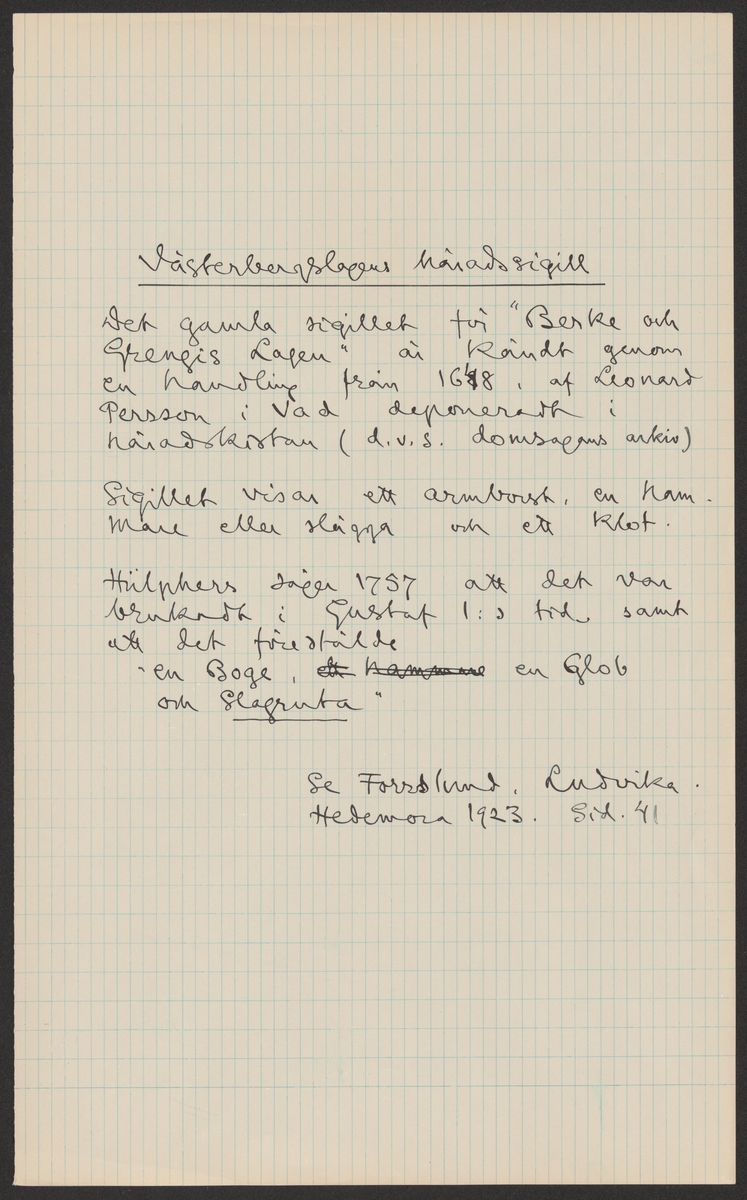 Västerbergslagens häradssigill
Det gamla sigillet för "Berke och
Grengis Lagen" är kändt genom
en handling från 1648, af Leonard
Persson i Vad deponeradt i
häradskistan (d.v.s. domsagans arkiv)
Sigillet visar ett armborst, en ham-
mare eller slägga och ett klot.
Hülphers säger 1757 att det var
brukadt i Gustaf I:s tid, samt
att det förestälde
"en Boge, ett hammare en Glob
och Slagruta"
Se Forsslund, Ludvika.
Hedemora 1923. Sid. 41